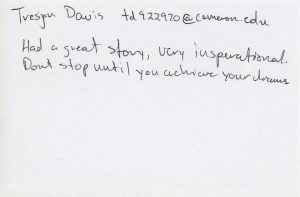 Tresjon Davis td922970@cameron.edu
Had a great story, very insperational.
Dont stop until you achieve your dreams